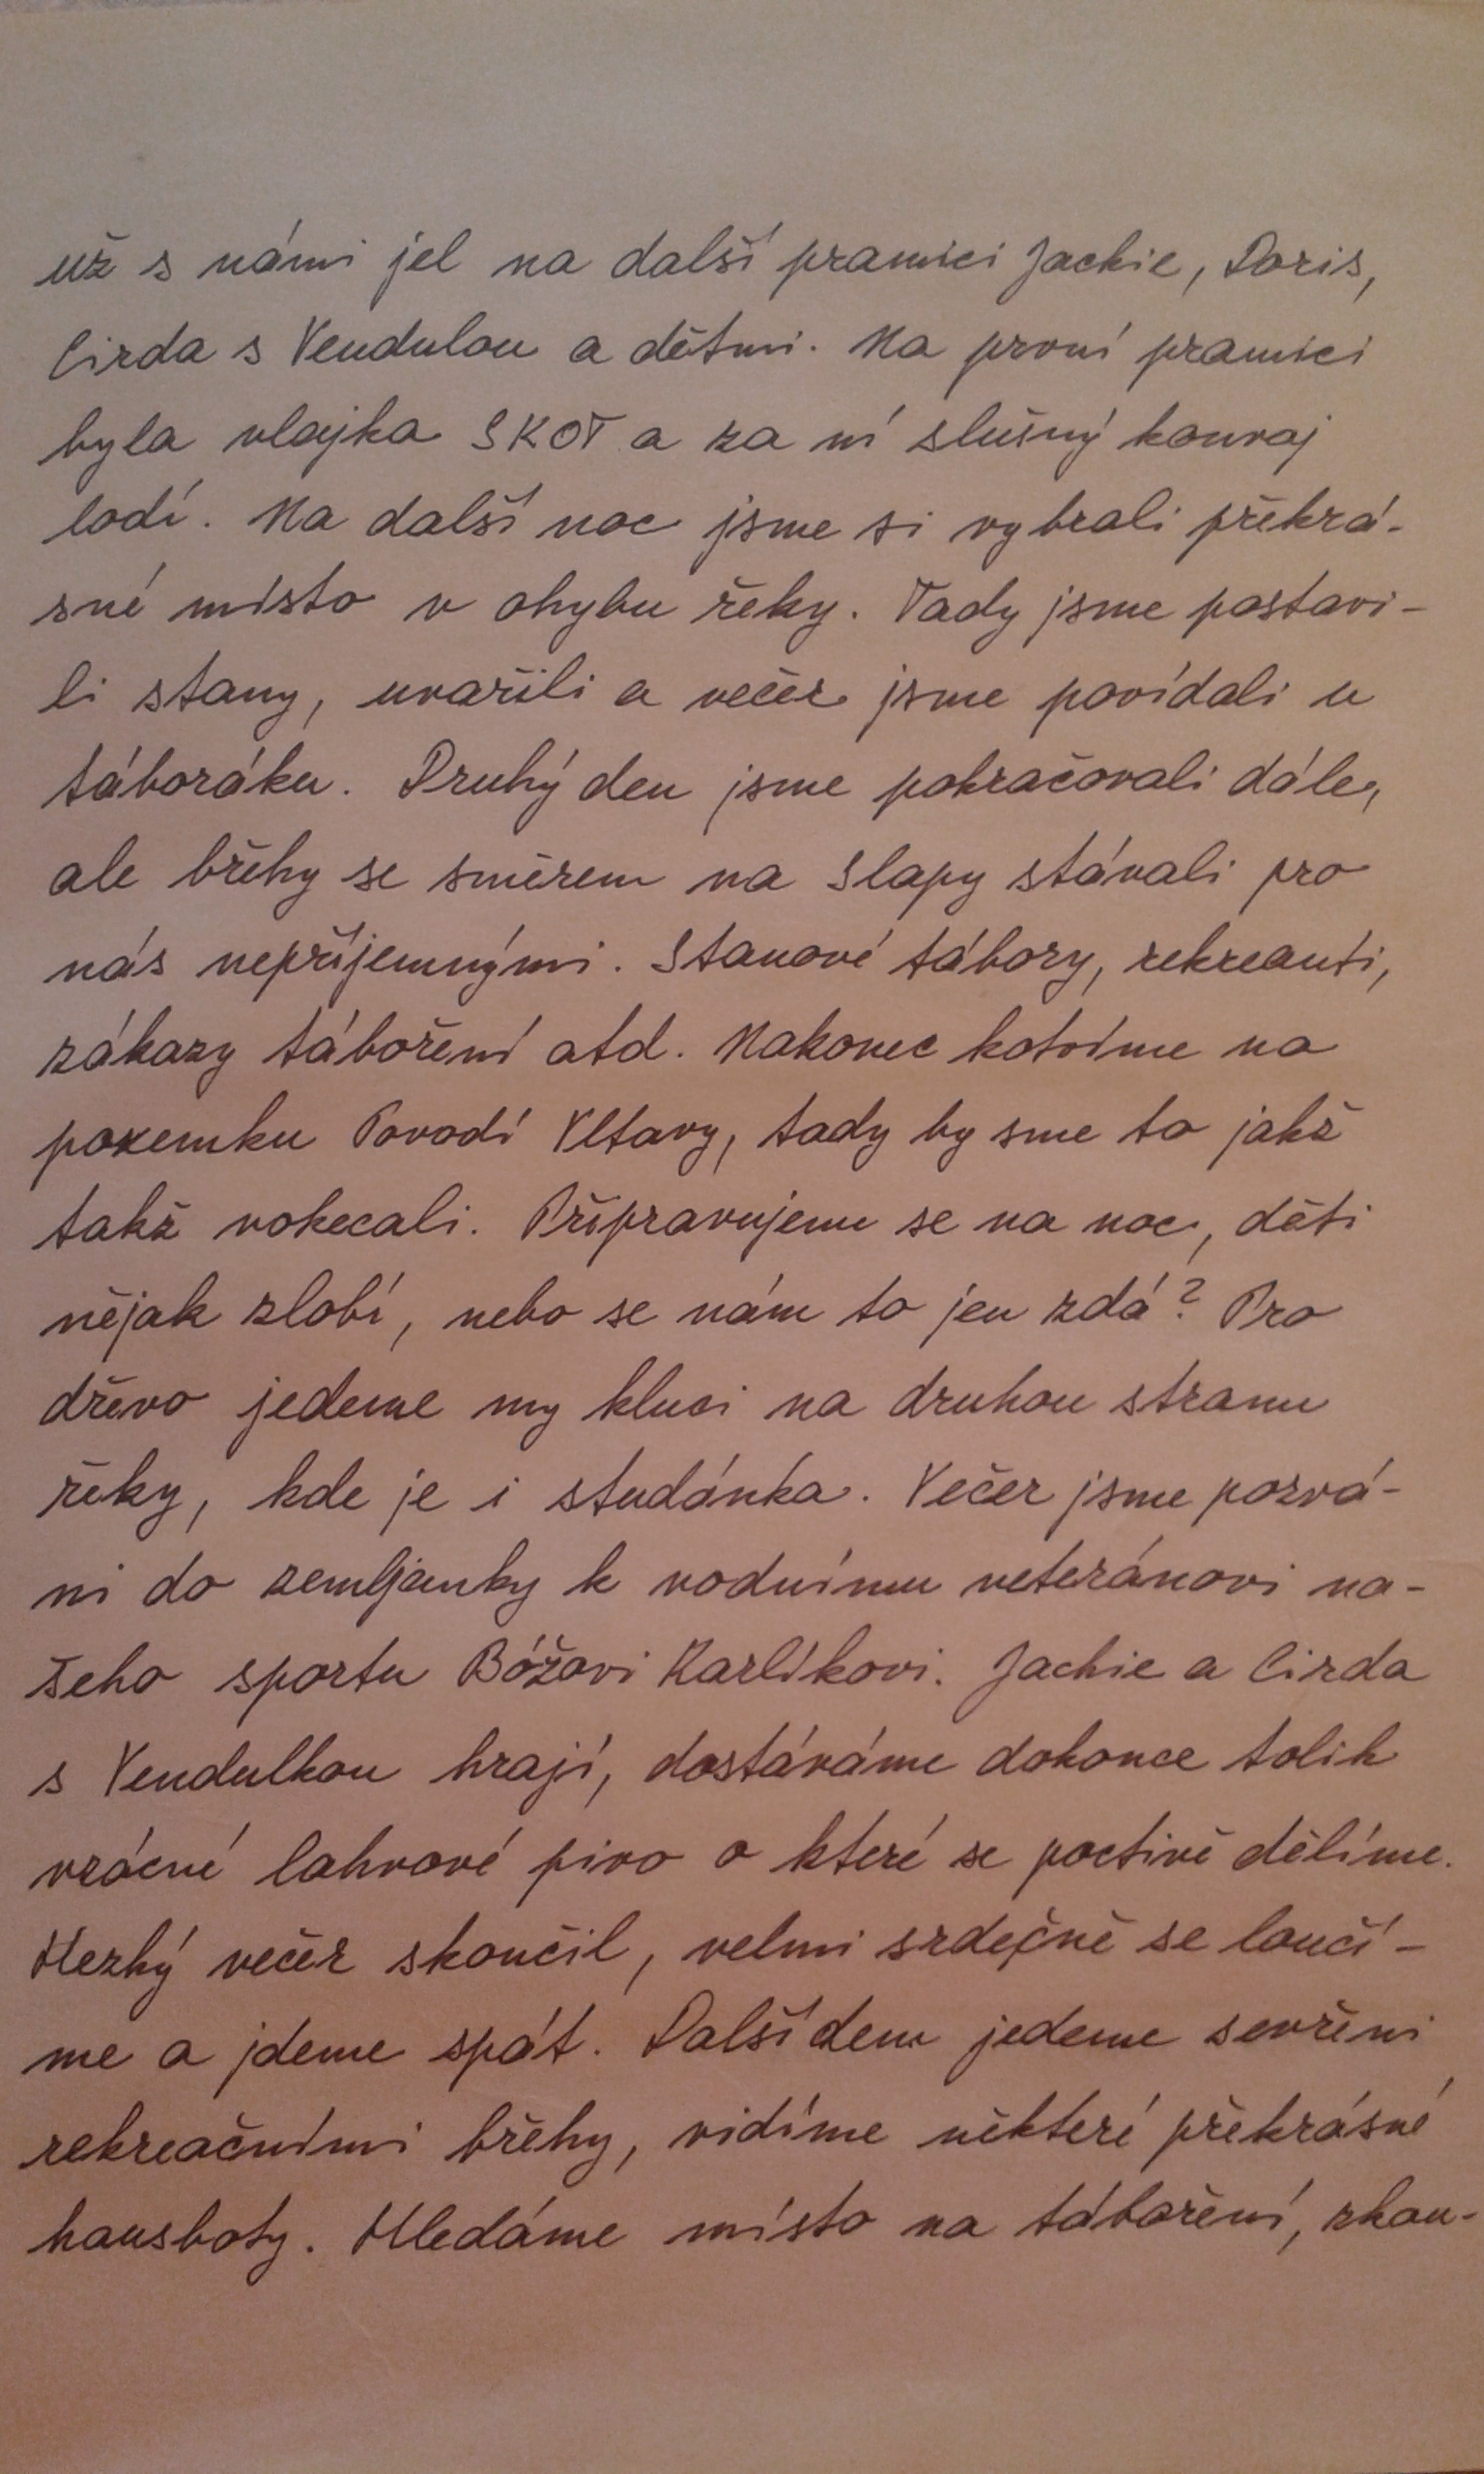 už s námi jel na další pramici Jackie, Doris,
Cirda s Vendulou a dětmi. Na první pramici
byla vlajka SKOT a za ní slušný konvoj
lodí. Na další noc jsme si vybrali překrá-
sné místo v ohybu řeky. Tady jsme postavi-
li stany, uvařili a večer jsme povídali u
táboráku. Druhý den jsme pokračovali dále,
ale břehy se směrem na Slapy stávali pro
nás nepříjemnými. Stanové tábory, rekreanti,
zákazy táboření atd. Nakonec kotvíme na
pozemku Povodí Vltavy, tady by sme to jakž
takž vokecali. Připravujeme se na noc, děti
nějak zlobí, nebo se nám to jen zdá? Pro
dřevo jedeme my kluci na druhou stranu
řeky, kde je i studánka. Večer jsme pozvá-
ni do zemljanky k vodnímu veteránovi na-
šeho sportu Bóžovi Karlíkovi. Jackie a Cirda
s Vendulkou hrají, dostáváme dokonce tolik
vzácné lahvové pivo o které se poctivě dělíme.
Hezký večer skončil, velmi srdečně se loučí-
me a jdeme spát. Další den jedeme sevřeni
rekreačními břehy, vidíme některé překrásné
hausboty. Hledáme místo na táboření, zkou-